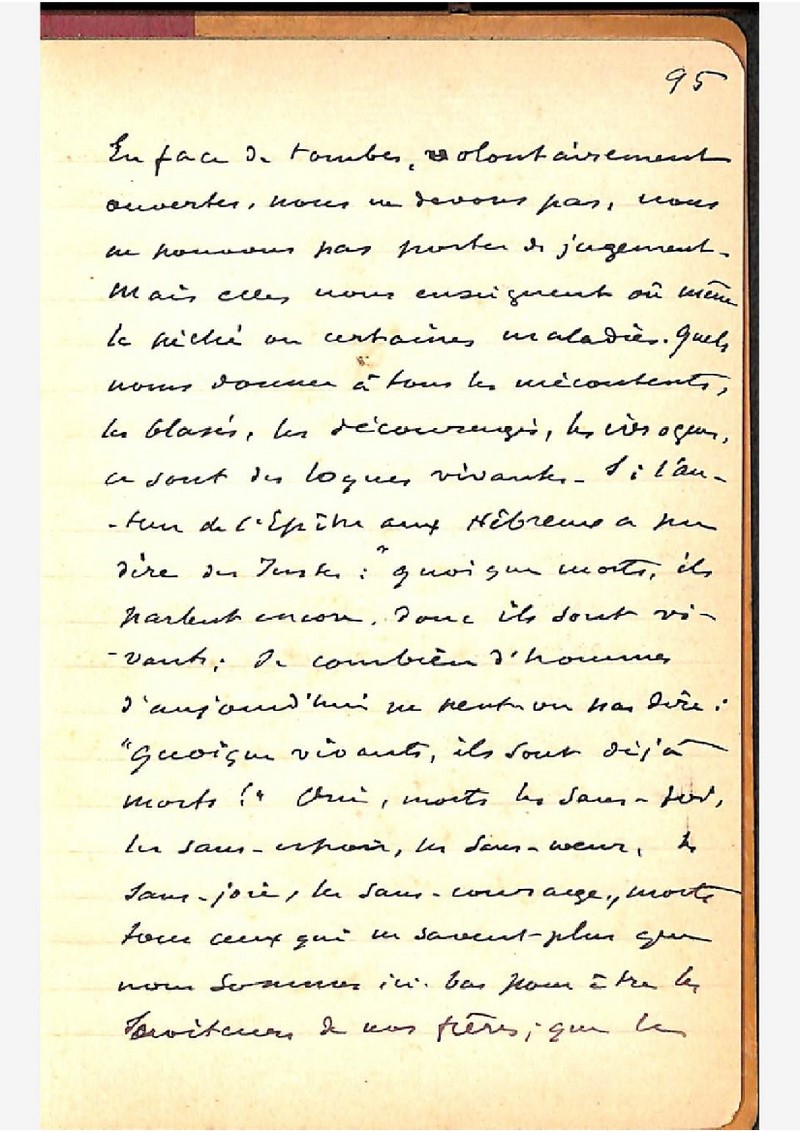 95
En face de tombes, volontairement
ouvertes, nous ne devons pas, nous
ne pouvons pas porter de jugement.
Mais elles nous enseignent où mène
le péché ou certaines maladies. Quels
noms donner à tous les mécontents,
les blasés, les découragés, les ivrognes,
ce sont des loques vivantes. Si l'au-
-teur de l'Epître aux Hébreux a pu
dire des Justes : "quoique morts, ils
parlent encore, donc ils sont vi-
-vants; de combien d'hommes
d'aujourd'hui ne peut-on pas dire :
"Quoique vivants, ils sont déjà
morts !" Oui, morts les sans-foi,
les sans-espoir, les sans-cœur, les
sans-joie, les sans-courage, morts
tous ceux qui ne savent plus que
nous sommes ici-bas pour être les
serviteurs de nos frères; que le